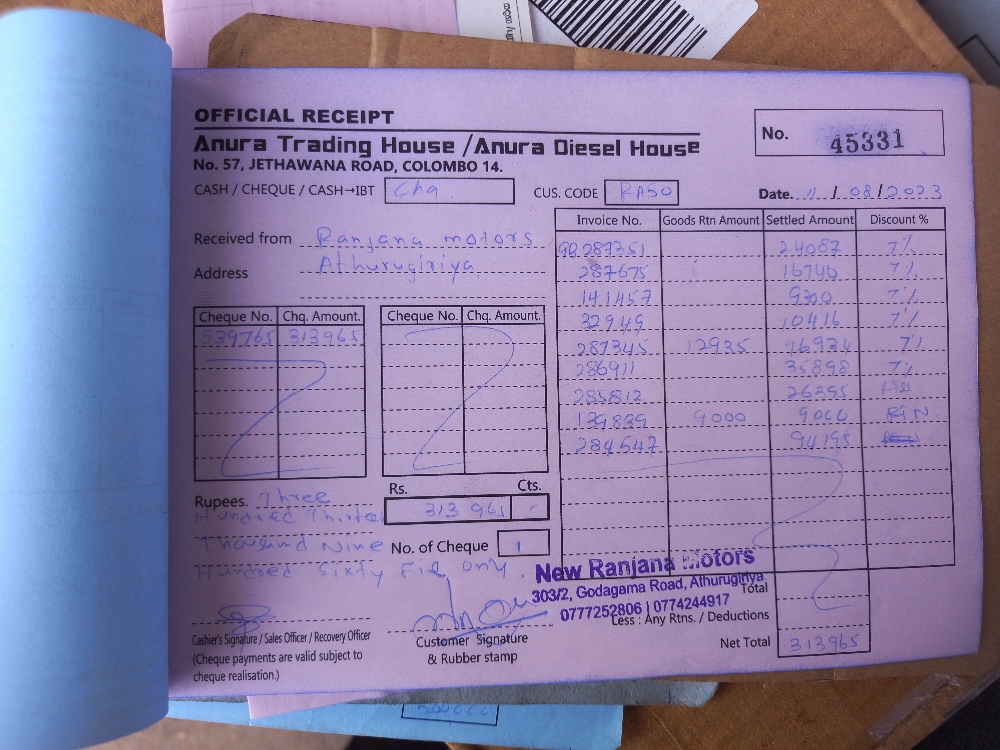 OFFICIAL RECEIPT
Anura Trading House / Anura Diesel House
No. 57, JETHAWANA ROAD, COLOMBO 14.
No. 45331
CASH / CHEQUE / CASH→IBT Chq
CUS. CODE RA50
Date. 11 / 08 / 2023
Received from Ranjana motors
Address Athurugiriya
Cheque No. Chq. Amount. Cheque No. Chq. Amount.
539765 313965
Invoice No. Goods Rtn Amount Settled Amount Discount %
98287351 24087 7%
287675 16740 7%
141457 9300 7%
32949 10416 7%
287345 12935 7%
286911 35898 7%
285812 26395
139839 9000 9000 RTN
284547 94195
Rupees. Three
Hundred Thirteen
Thousand Nine
Hundred Sixty Five only.
Rs. Cts.
313 965 -
No. of Cheque 1
New Ranjana Motors
303/2, Godagama Road, Athurugiriya.
0777252806 | 0774244917
Total
Less : Any Rtns. / Deductions
Net Total 313965
Cashier's Signature / Sales Officer / Recovery Officer
(Cheque payments are valid subject to
cheque realisation.)
Customer Signature
& Rubber stamp